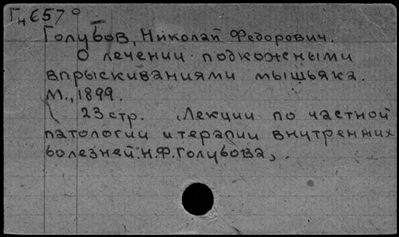 Гн 657°
Голубов, Николай Федорович.
О лечении подкожными
впрыскиваниями мышьяка.
М., 1899.
23 стр. „Лекции по частной
патологии и терапии внутренних
болезней Н.Ф. Голубова„.